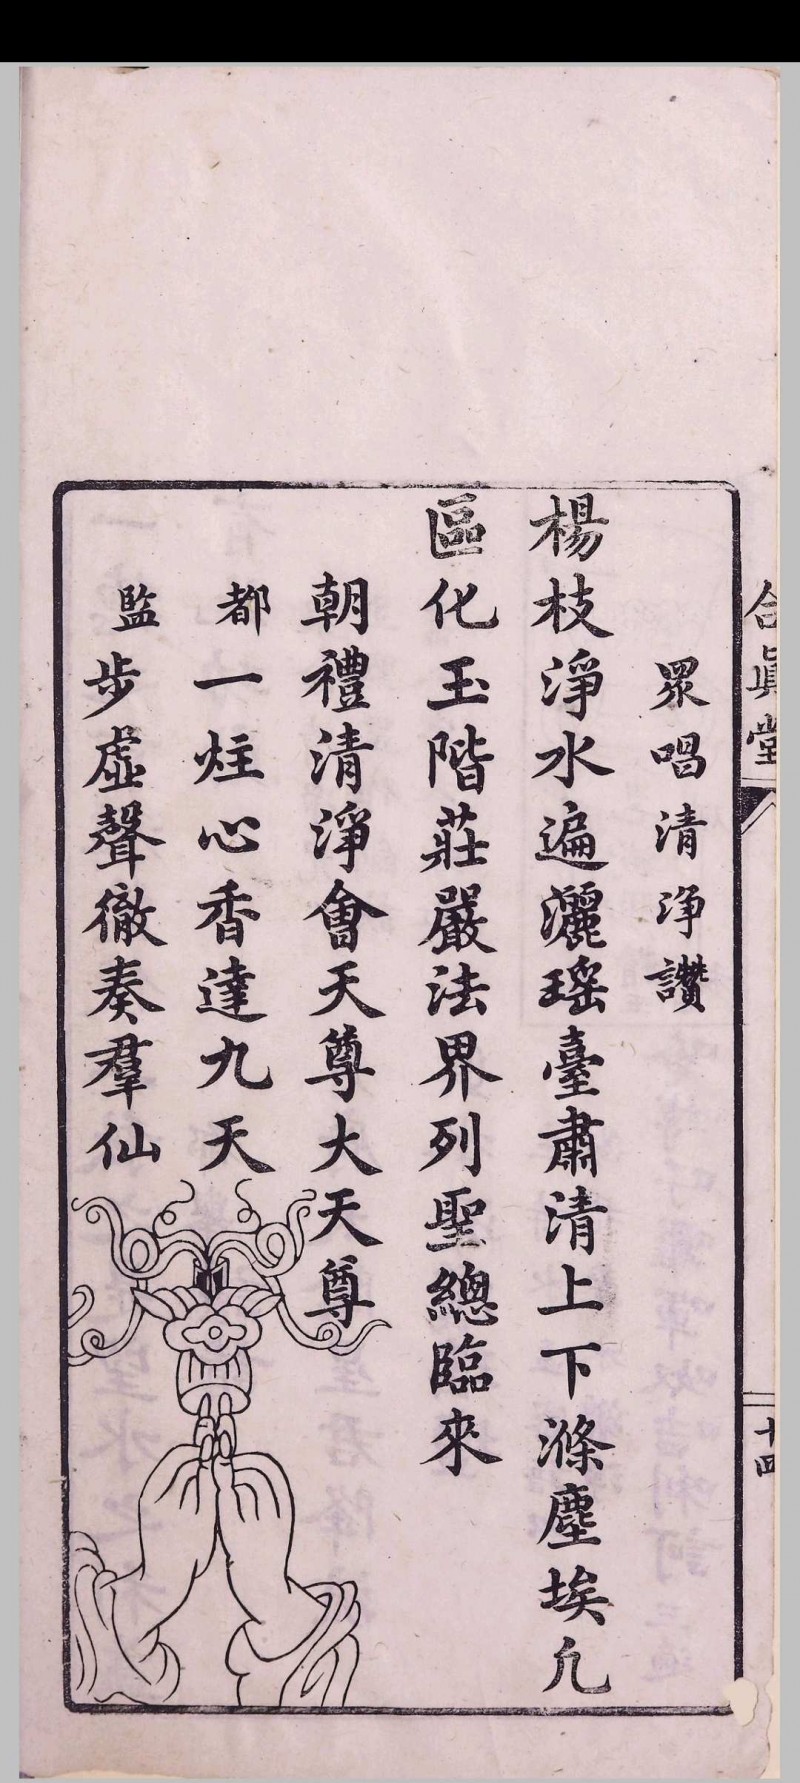 合眞堂
十四
眾唱清淨讚
楊枝淨水遍灑瑤臺肅清上下滌塵埃凢
區化玉階莊嚴法界列聖總臨來
朝禮清淨會天尊大天尊
都一炷心香達九天
監步虛聲徹奏羣仙